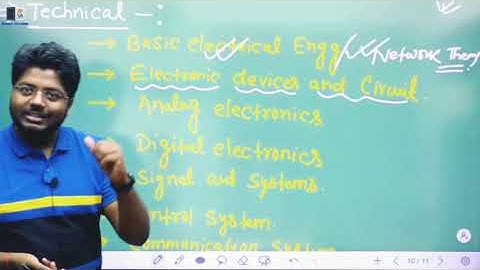 Technical -:
→ Basic electrical Engg Network Theory
→ Electronic devices and Circuit.
→ Analog electronics
Digital electronics
Signal and Systems.
ontrol System.
Communication System
10 / 11